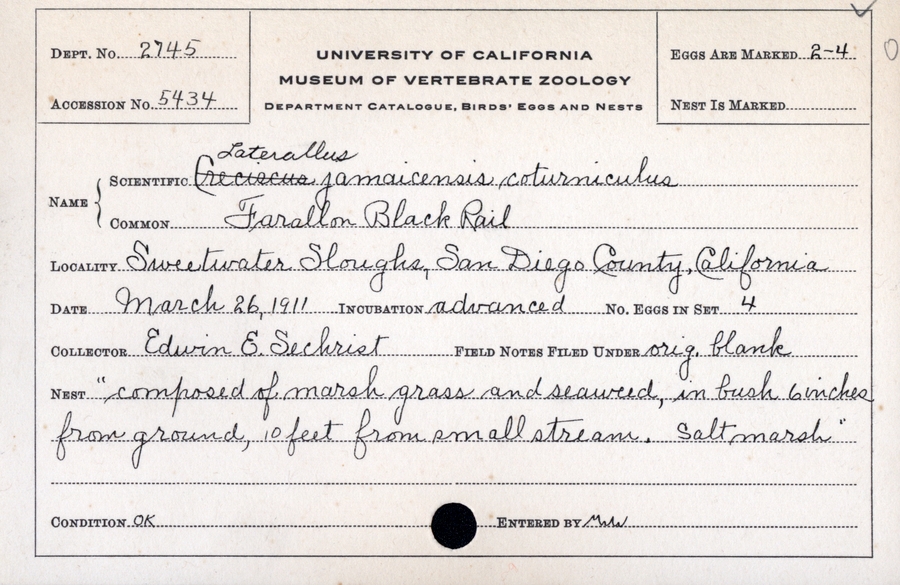 DEPT. No. 2745
ACCESSION No. 5434
UNIVERSITY OF CALIFORNIA
MUSEUM OF VERTEBRATE ZOOLOGY
DEPARTMENT CATALOGUE, BIRDS' EGGS AND NESTS
EGGS ARE MARKED 2-4
NEST IS MARKED
Laterallus
NAME { SCIENTIFIC Creciscus jamaicensis coturniculus
COMMON Farallon Black Rail
LOCALITY Sweetwater Sloughs, San Diego County, California
DATE March 26, 1911 INCUBATION advanced No. EGGS IN SET 4
COLLECTOR Edwin E. Sechrist FIELD NOTES FILED UNDER orig. blank
NEST "composed of marsh grass and seaweed, in bush 6 inches
from ground, 10 feet from small stream. Salt marsh"
CONDITION OK ENTERED BY